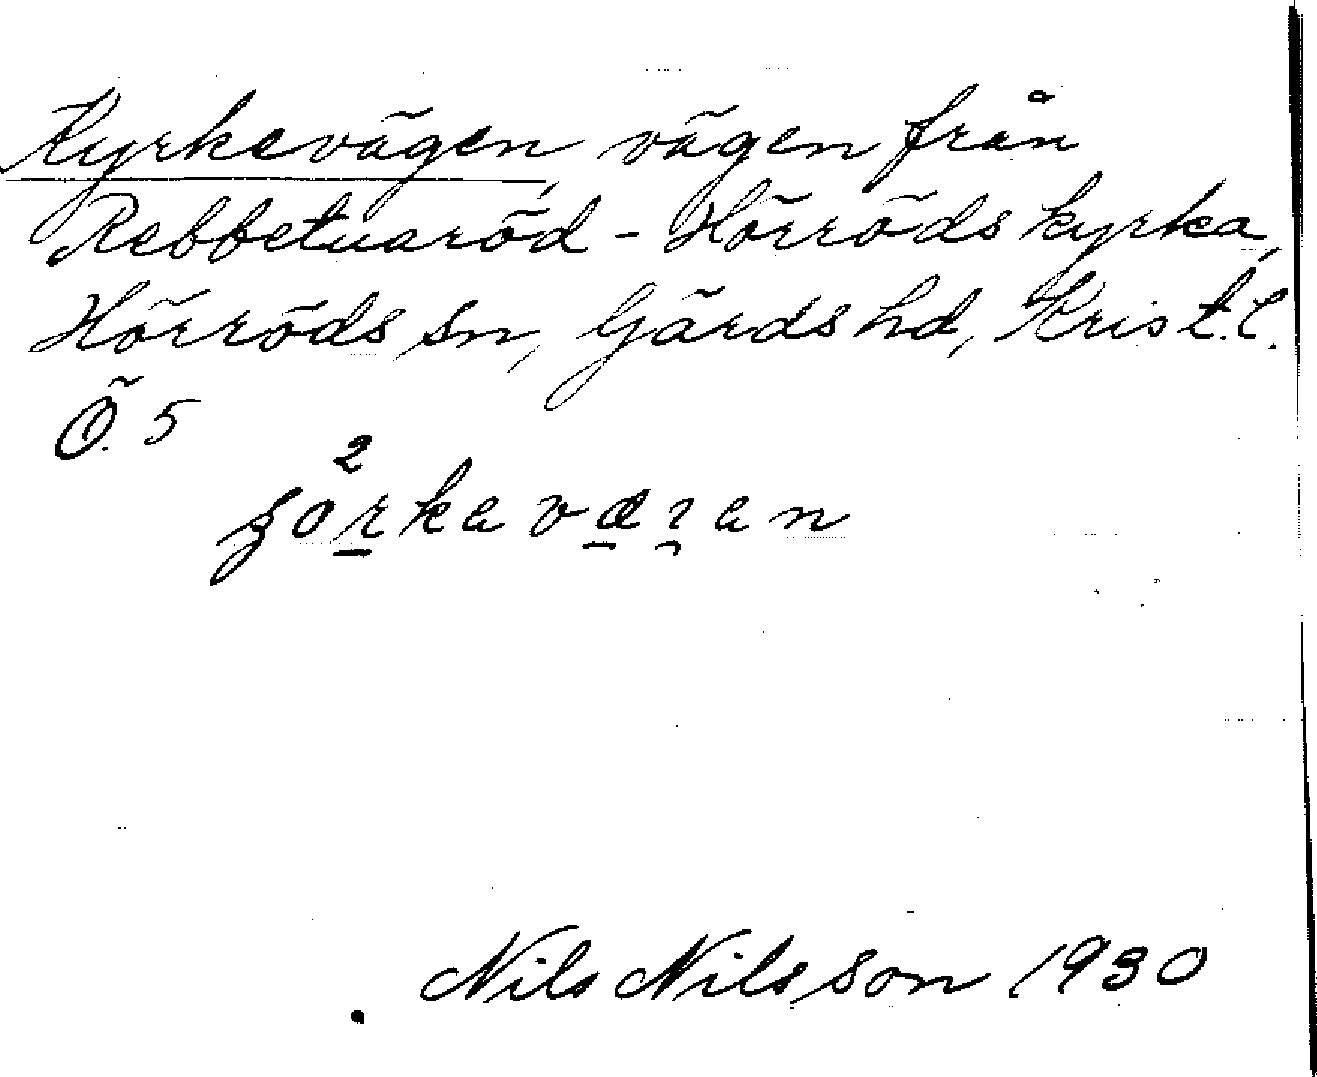 Kyrkevägen, vägen från
Rebbetuaröd - Hörröds kyrka,
Hörröds sn, Gärds hd, Krist.l.
Ö. 5
Nils Nilsson 1930